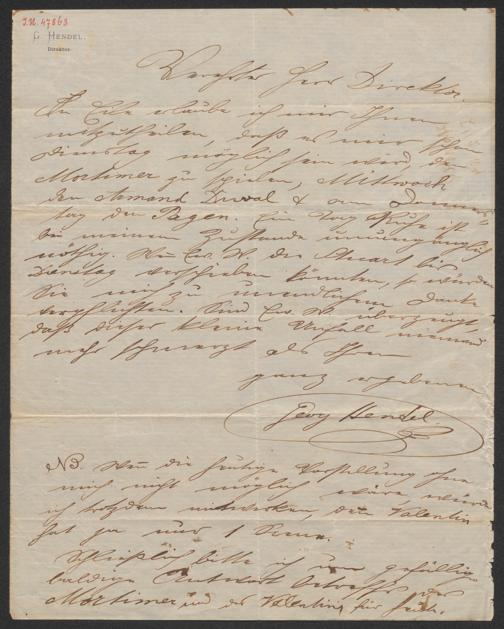 I.N. 47863
G. HENDEL.
Direktor.
Verehrter Herr Direktor.
In Eile erlaube ich mir Ihnen
mitzutheilen, daß es mir schon
Dienstag möglich sein wird, den
Mortimer zu spielen, Mittwoch
den Armand Duval & am Donners-
tag den Pagen. Ein Tag Ruhe ist
bei meinem Zustande unumgänglich
nöthig. Wenn Ew. W. die Stuart bis
Dienstag verschieben könnten, so würden
Sie mich zu unendlichem Danke
verpflichten. Sind Ew. W. überzeugt,
daß dieser kleine Unfall niemand
mehr schmerzt als Ihren
ganz ergebenen
Georg Hendel.
NB. Wenn die heutige Vorstellung ohne
mich nicht möglich wäre, würde
ich trotzdem mitwirken, der Valentin
hat ja nur 1 Scene.
Schließlich bitte ich um gefällige
baldige Antwort betreffs des
Mortimer und des Valentin für heute.